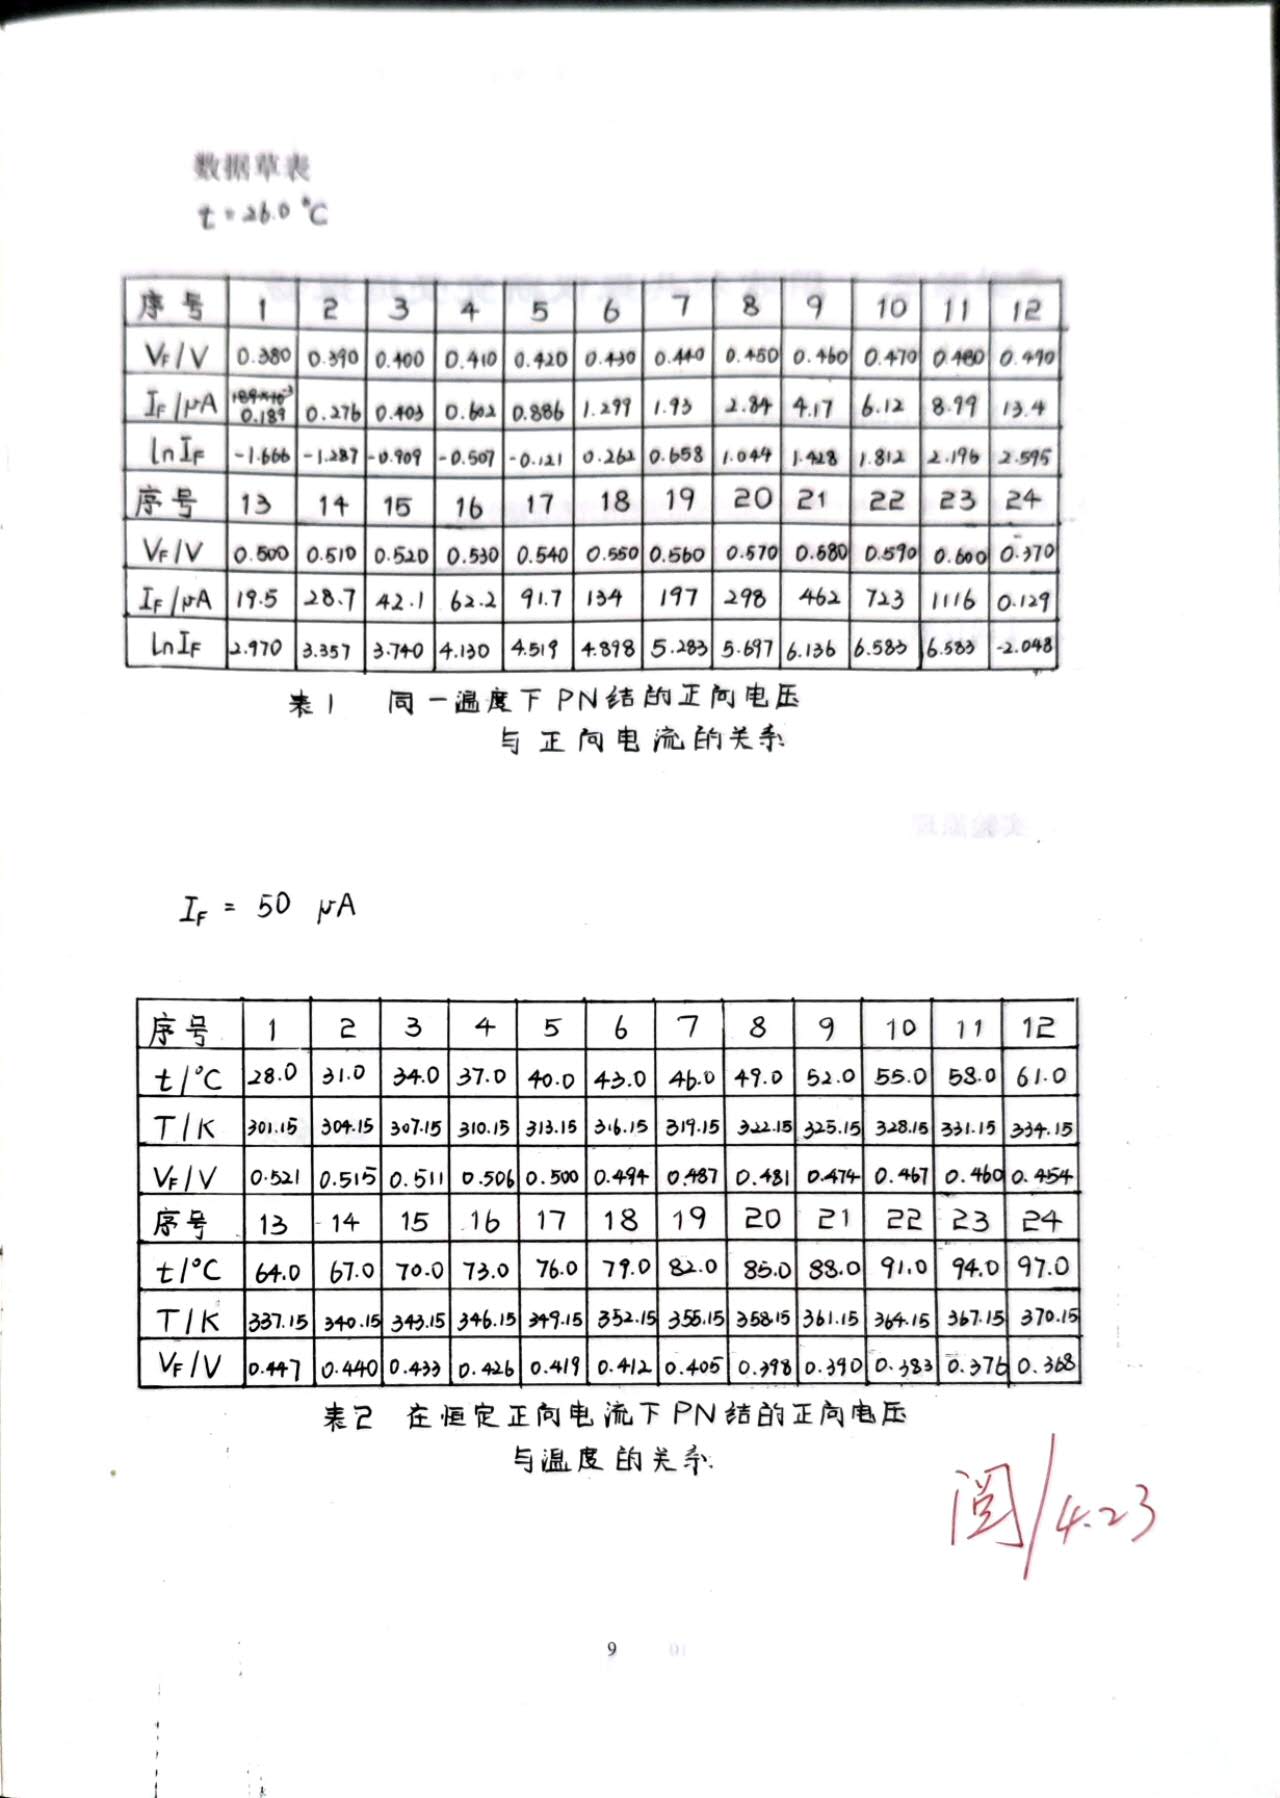 数据草表
t = 26.0 °C
序号 1 2 3 4 5 6 7 8 9 10 11 12
VF/V 0.380 0.390 0.400 0.410 0.420 0.430 0.440 0.450 0.460 0.470 0.480 0.490
IF/μA 189×10⁻³ 0.189 0.276 0.403 0.602 0.886 1.299 1.93 2.84 4.17 6.12 8.99 13.4
lnIF -1.666 -1.287 -0.909 -0.507 -0.121 0.262 0.658 1.044 1.428 1.812 2.196 2.595
序号 13 14 15 16 17 18 19 20 21 22 23 24
VF/V 0.500 0.510 0.520 0.530 0.540 0.550 0.560 0.570 0.580 0.590 0.600 0.370
IF/μA 19.5 28.7 42.1 62.2 91.7 134 197 298 462 723 1116 0.129
lnIF 2.970 3.357 3.740 4.130 4.519 4.898 5.283 5.697 6.136 6.583 6.583 -2.048
表1 同一温度下PN结的正向电压
与正向电流的关系
IF = 50 μA
序号 1 2 3 4 5 6 7 8 9 10 11 12
t/°C 28.0 31.0 34.0 37.0 40.0 43.0 46.0 49.0 52.0 55.0 58.0 61.0
T/K 301.15 304.15 307.15 310.15 313.15 316.15 319.15 322.15 325.15 328.15 331.15 334.15
VF/V 0.521 0.515 0.511 0.506 0.500 0.494 0.487 0.481 0.474 0.467 0.460 0.454
序号 13 14 15 16 17 18 19 20 21 22 23 24
t/°C 64.0 67.0 70.0 73.0 76.0 79.0 82.0 85.0 88.0 91.0 94.0 97.0
T/K 337.15 340.15 343.15 346.15 349.15 352.15 355.15 358.15 361.15 364.15 367.15 370.15
VF/V 0.447 0.440 0.433 0.426 0.419 0.412 0.405 0.398 0.390 0.383 0.376 0.368
表2 在恒定正向电流下PN结的正向电压
与温度的关系
阅/4.23
9